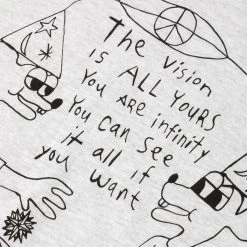 The vision
is ALL YOURS
YOU ARE infinity
You can see
it all if
you want